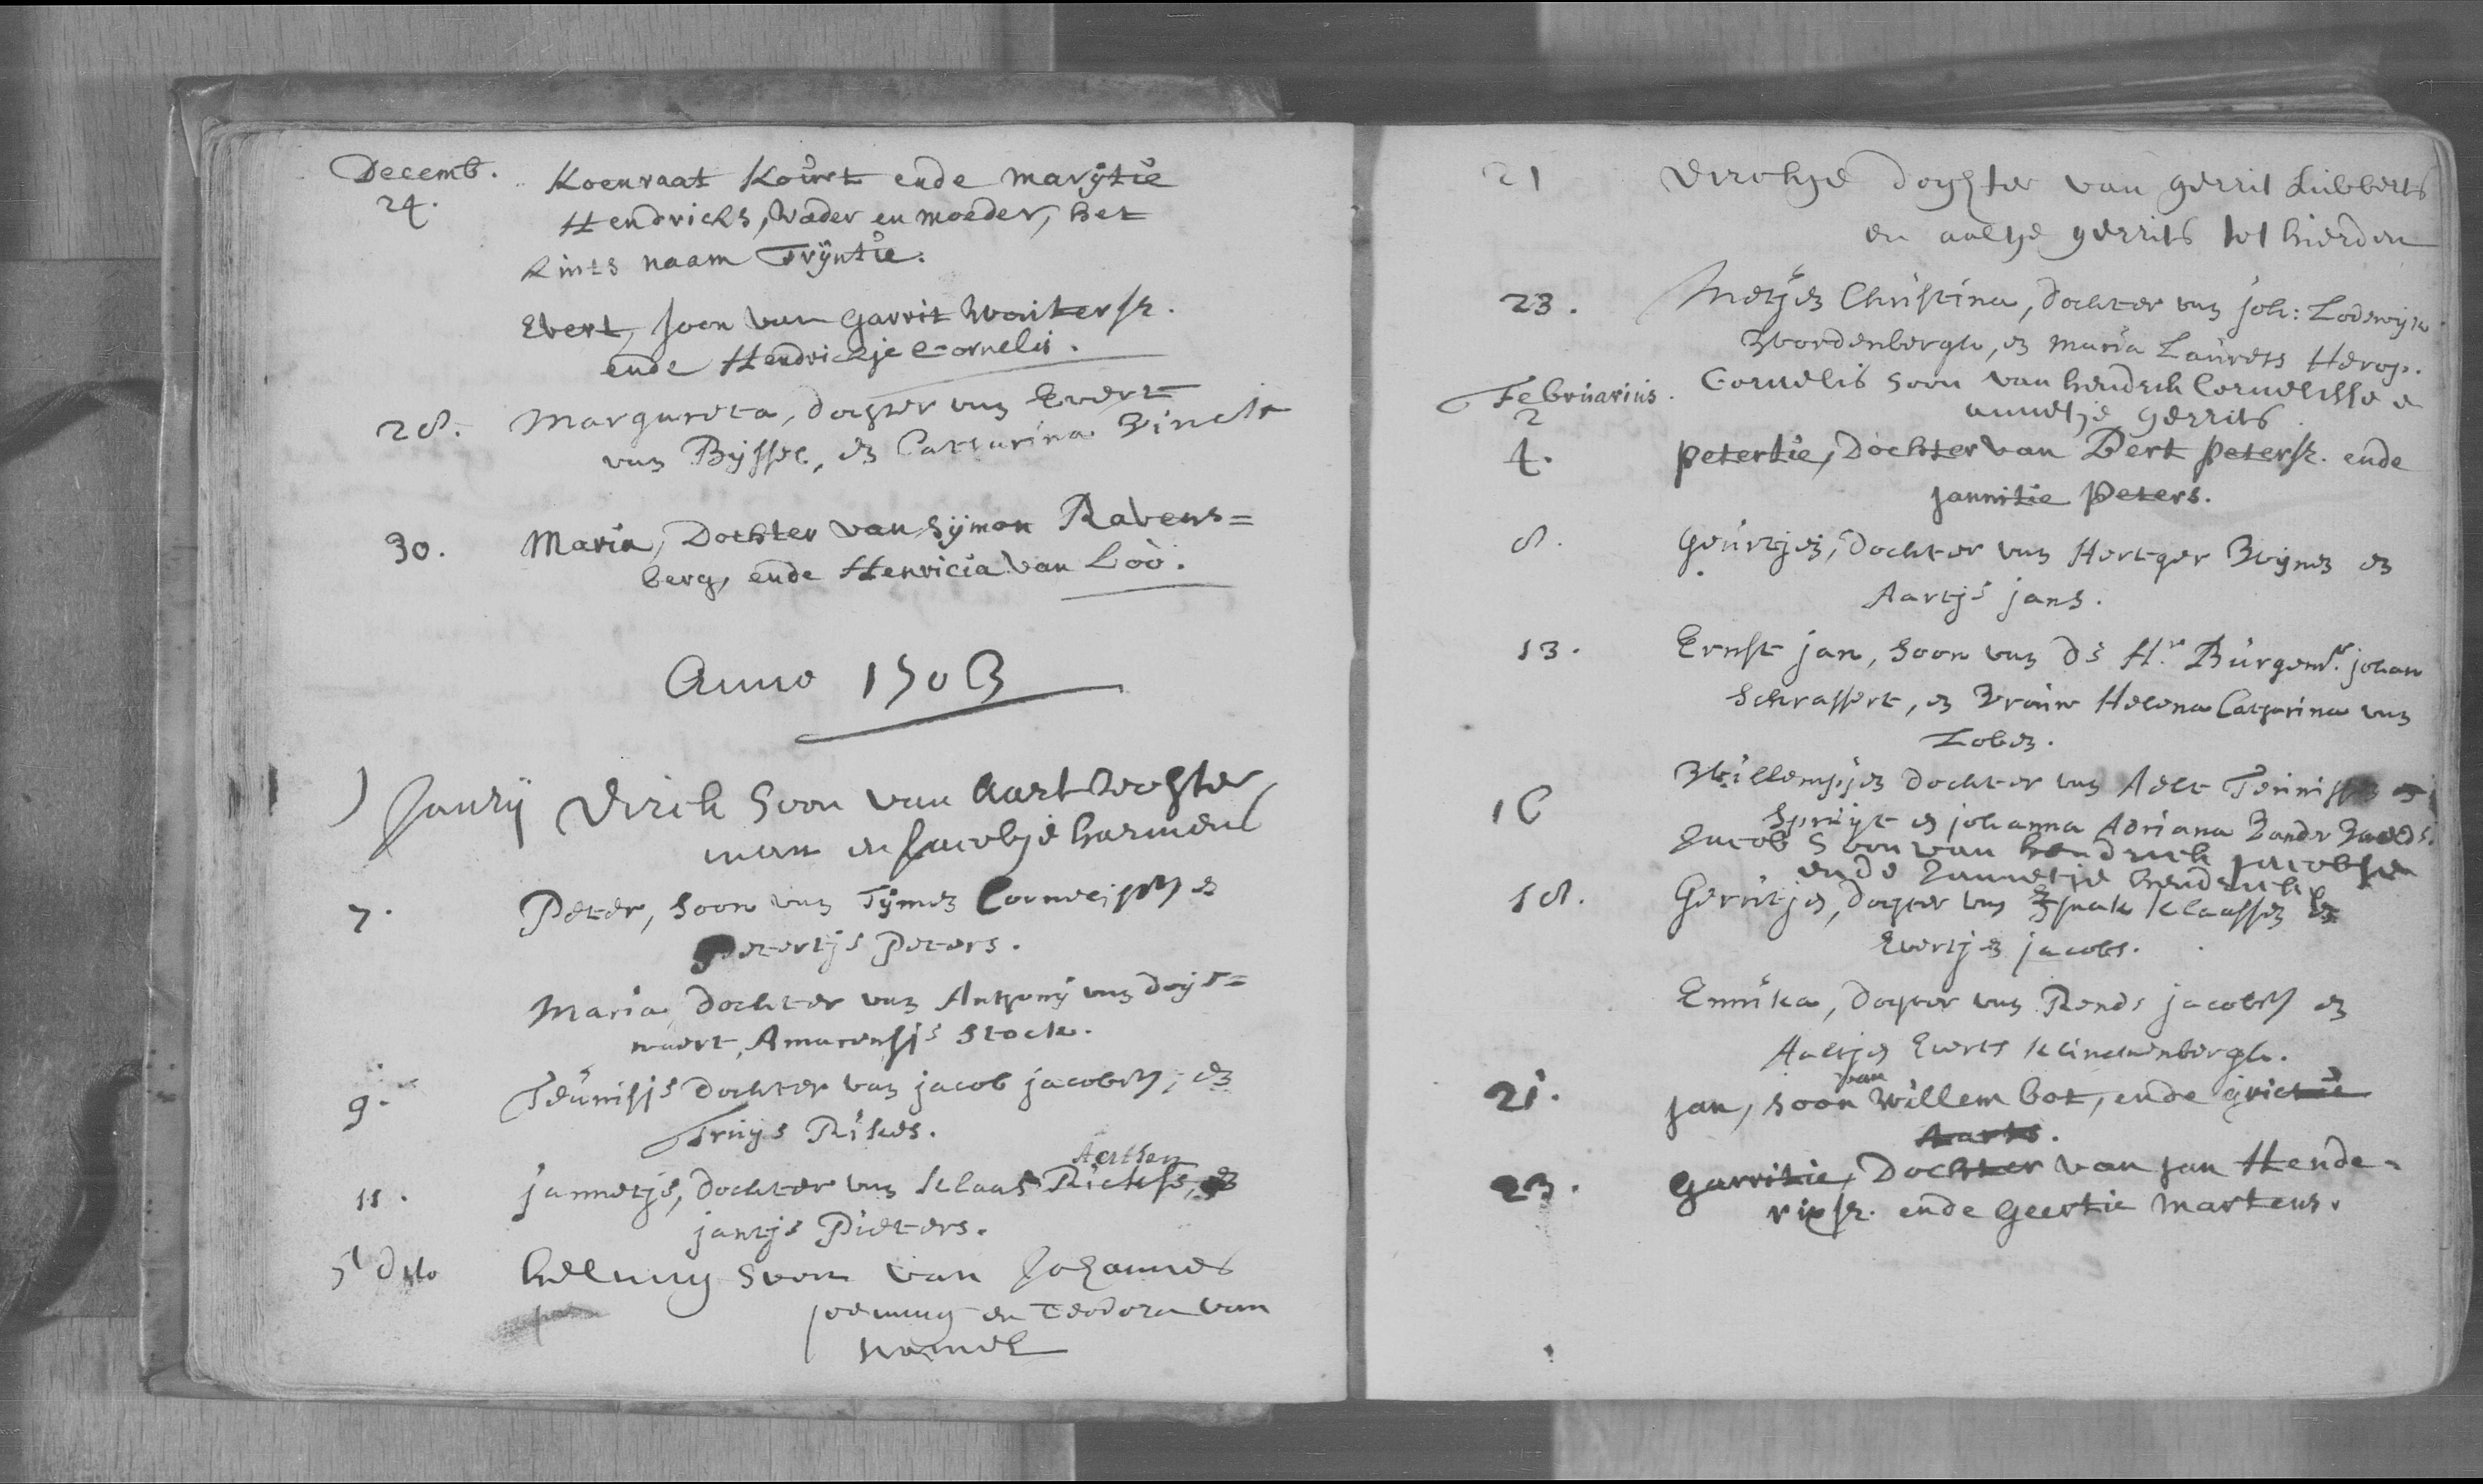 Decemb. Koenraat Kourt ende marijtie
24. Hendricks, vader en moeder, het
kints naam Trijntie.
Evert, soon van Garrit Woutersz.
ende Hendrickje Cornelis.
28. Margareta, dochter van Evert
van Bijssel, en Catharina Vinck
30. Maria, Dochter van Sijmon Ravens=
berg, ende Henricia van Loo.
Anno 1703
Janrij Dirck Soon van Aart
man en Jacobje harmens
7. Peter, Soon van Tijmen Cornelissen en
Petertje Peters.
Maria, dochter van Anthonij van
Stock.
9. Teunisje dochter van jacob jacobsen, en
Truijs Rikes.
Aertsen
11. jannetje, dochter van Klaas Rickse, en
jantje Pieters.
dito Soon van Johannes
en Teodora van
21 Dirckje dochter van gerrit Lubberts
en aaltje gerrits tot hierden
23. Metjen Christina, dochter van joh: Lodewijk
Wordenbergh, en maria Laurens
Februarius. Cornelis Soon van hendrik Cornelisse e
2 annetje gerrits
4. petertie, Dochter van Bert petersz. ende
jannitie peters.
8. Geurtjen, dochter van Hertger Wijnen en
Aartje jans.
13. Ernst jan, Soon van de Hr. Burgemr. johan
Schrassert, en Vrouw Helena Catharina van
Loben.
16 Willempjen dochter van Aelt Teunissen
Spruijt en johanna Adriana
Jacob Soon van hendrick jacobsen
ende Jannetje hendricks
18. Gerritjen, dochter van Isaak Klaassen en
Evertjen jacobs.
Ennika, dochter van jacobsen en
Aaltjen Everts Klinckenbergh.
van
21. jan, soon Willem bot, ende grietie
Aarts.
23. Garritie, Dochter van jan Hende-
rixsz. ende Geertie Martens.